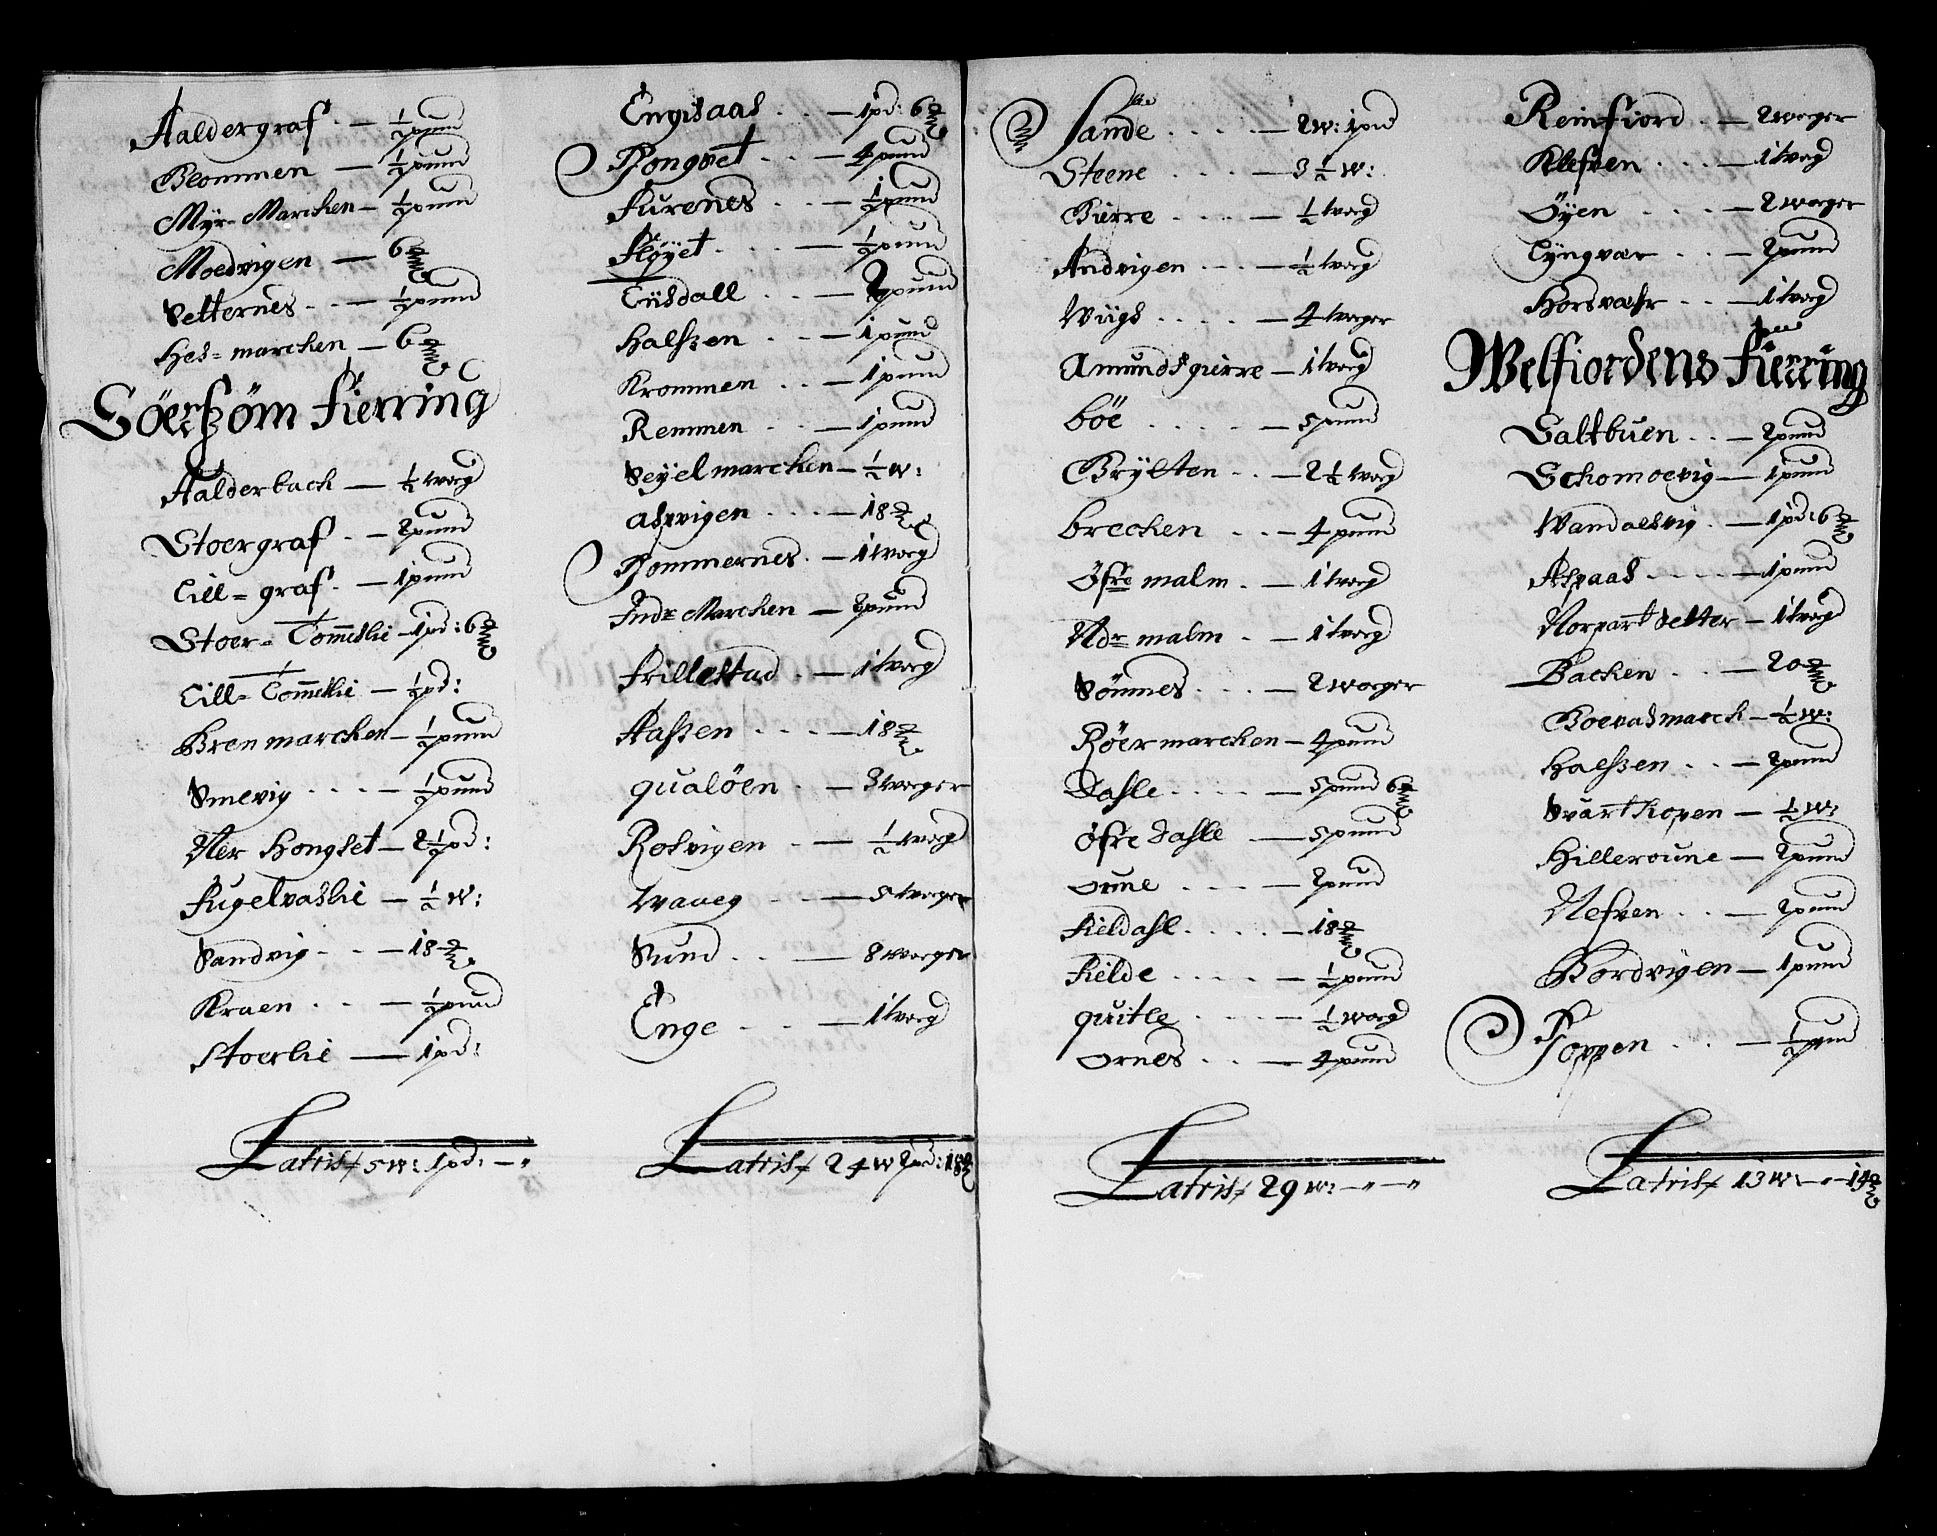 Aaldergraf . — ½ pund
Blommen — ½ pund
Myr-Marchen — ½ pund
Moedvigen — 6 ℔
Setternes . . — ½ pund
Hes-marchen — 6 ℔
Söerszöm Fierring
Aalderbach — ½ woeg
Stoergraf . — 2 pund
Lill-graf . — 1 pund
Stoer-Tom̄eslie — 1 pd: 6 ℔
Lill-Tom̄eslie — ½ pd:
Bren marchen — ½ pund
Smevig . . . — ½ pund
Ner Hongset — 2½ pd:
Fugelvaslie — ½ w:
Sandvig . . — 18 ℔
Kraen . . . — ½ pund
Stoerlie — 1 pd:
Latris 5 w: 1 pd: — "
Engisaas . . — 1 pd: 6 ℔
Rongset . . — 4 pund
Furenes . . — ½ pund
Fløyet . . . — ½ pund
Tiisdall . . — 2 pund
Halszen . . — 1 pund
Krommen . . — 1 pund
Remmen . . — 1 pund
Seyelmarchen — ½ w:
Aspvigen . . . — 18 ℔
Rommernes . — 1 woeg
Indr Marchen — 2 pund
Frillestad . — 1 woeg
Aaszen . . . — 18 ℔
Qualöen . — 3 woeger
Rosvigen . — ½ woeg
Waaeg . . — 5 woeger
Sund . . — 8 woeger
Enge . . — 1 woeg
Latris 24 w 2 pd: 18 ℔
Sande . . . . — 2 w: 1 pd
Steene . . . . — 3½ w:
Bierre . . . . — ½ woeg
Andvigen . . . — ½ woeg
Wiigs . . . . — 4 woeger
Amundsgierre — 1 woeg
böe . . . . . — 5 pund
Brylten . . — 2½ woeg
brecken . . — 4 pund
Öfre malm . — 1 woeg
Ndr malm . — 1 woeg
Sömnes . . . — 2 woeger
Röer marchen — 4 pund
Dahle . . . . — 5 pund 6 ℔
Öfre Dahle — 5 pund
Oune . . . — 2 pund
Fieldahl . . . . — 18 ℔
Fielde . . . . — ½ pund
quitle . . . . — ½ woeg
Ornes . . — 4 pund
Latris 29 w: — " — "
Reinfiord . — 2 woeger
Klefven . . . — 1 woeg
Öyen . . . — 2 woeger
Lyngvær . . — 2 pund
Horsvæhr . . — 1 woeg
Welfiordens Fierring
Saltbuen . . — 2 pund
Schomoevig — 1 pund
Wandalsvig . — 1 pd: 6 ℔
Aspaas . . . . — 1 pund
Norpart Setter — 1 woeg
Backen . . . — 20 ℔
Boevasmarch — ½ w:
Halszen . . — 2 pund
Svart Hopen — ½ w:
Hilleroune — 2 pund
Nefven . . — 2 pund
Bordvigen — 1 pund
Toppen . . . — ½ pund
Latris 13 w — " — 14 ℔